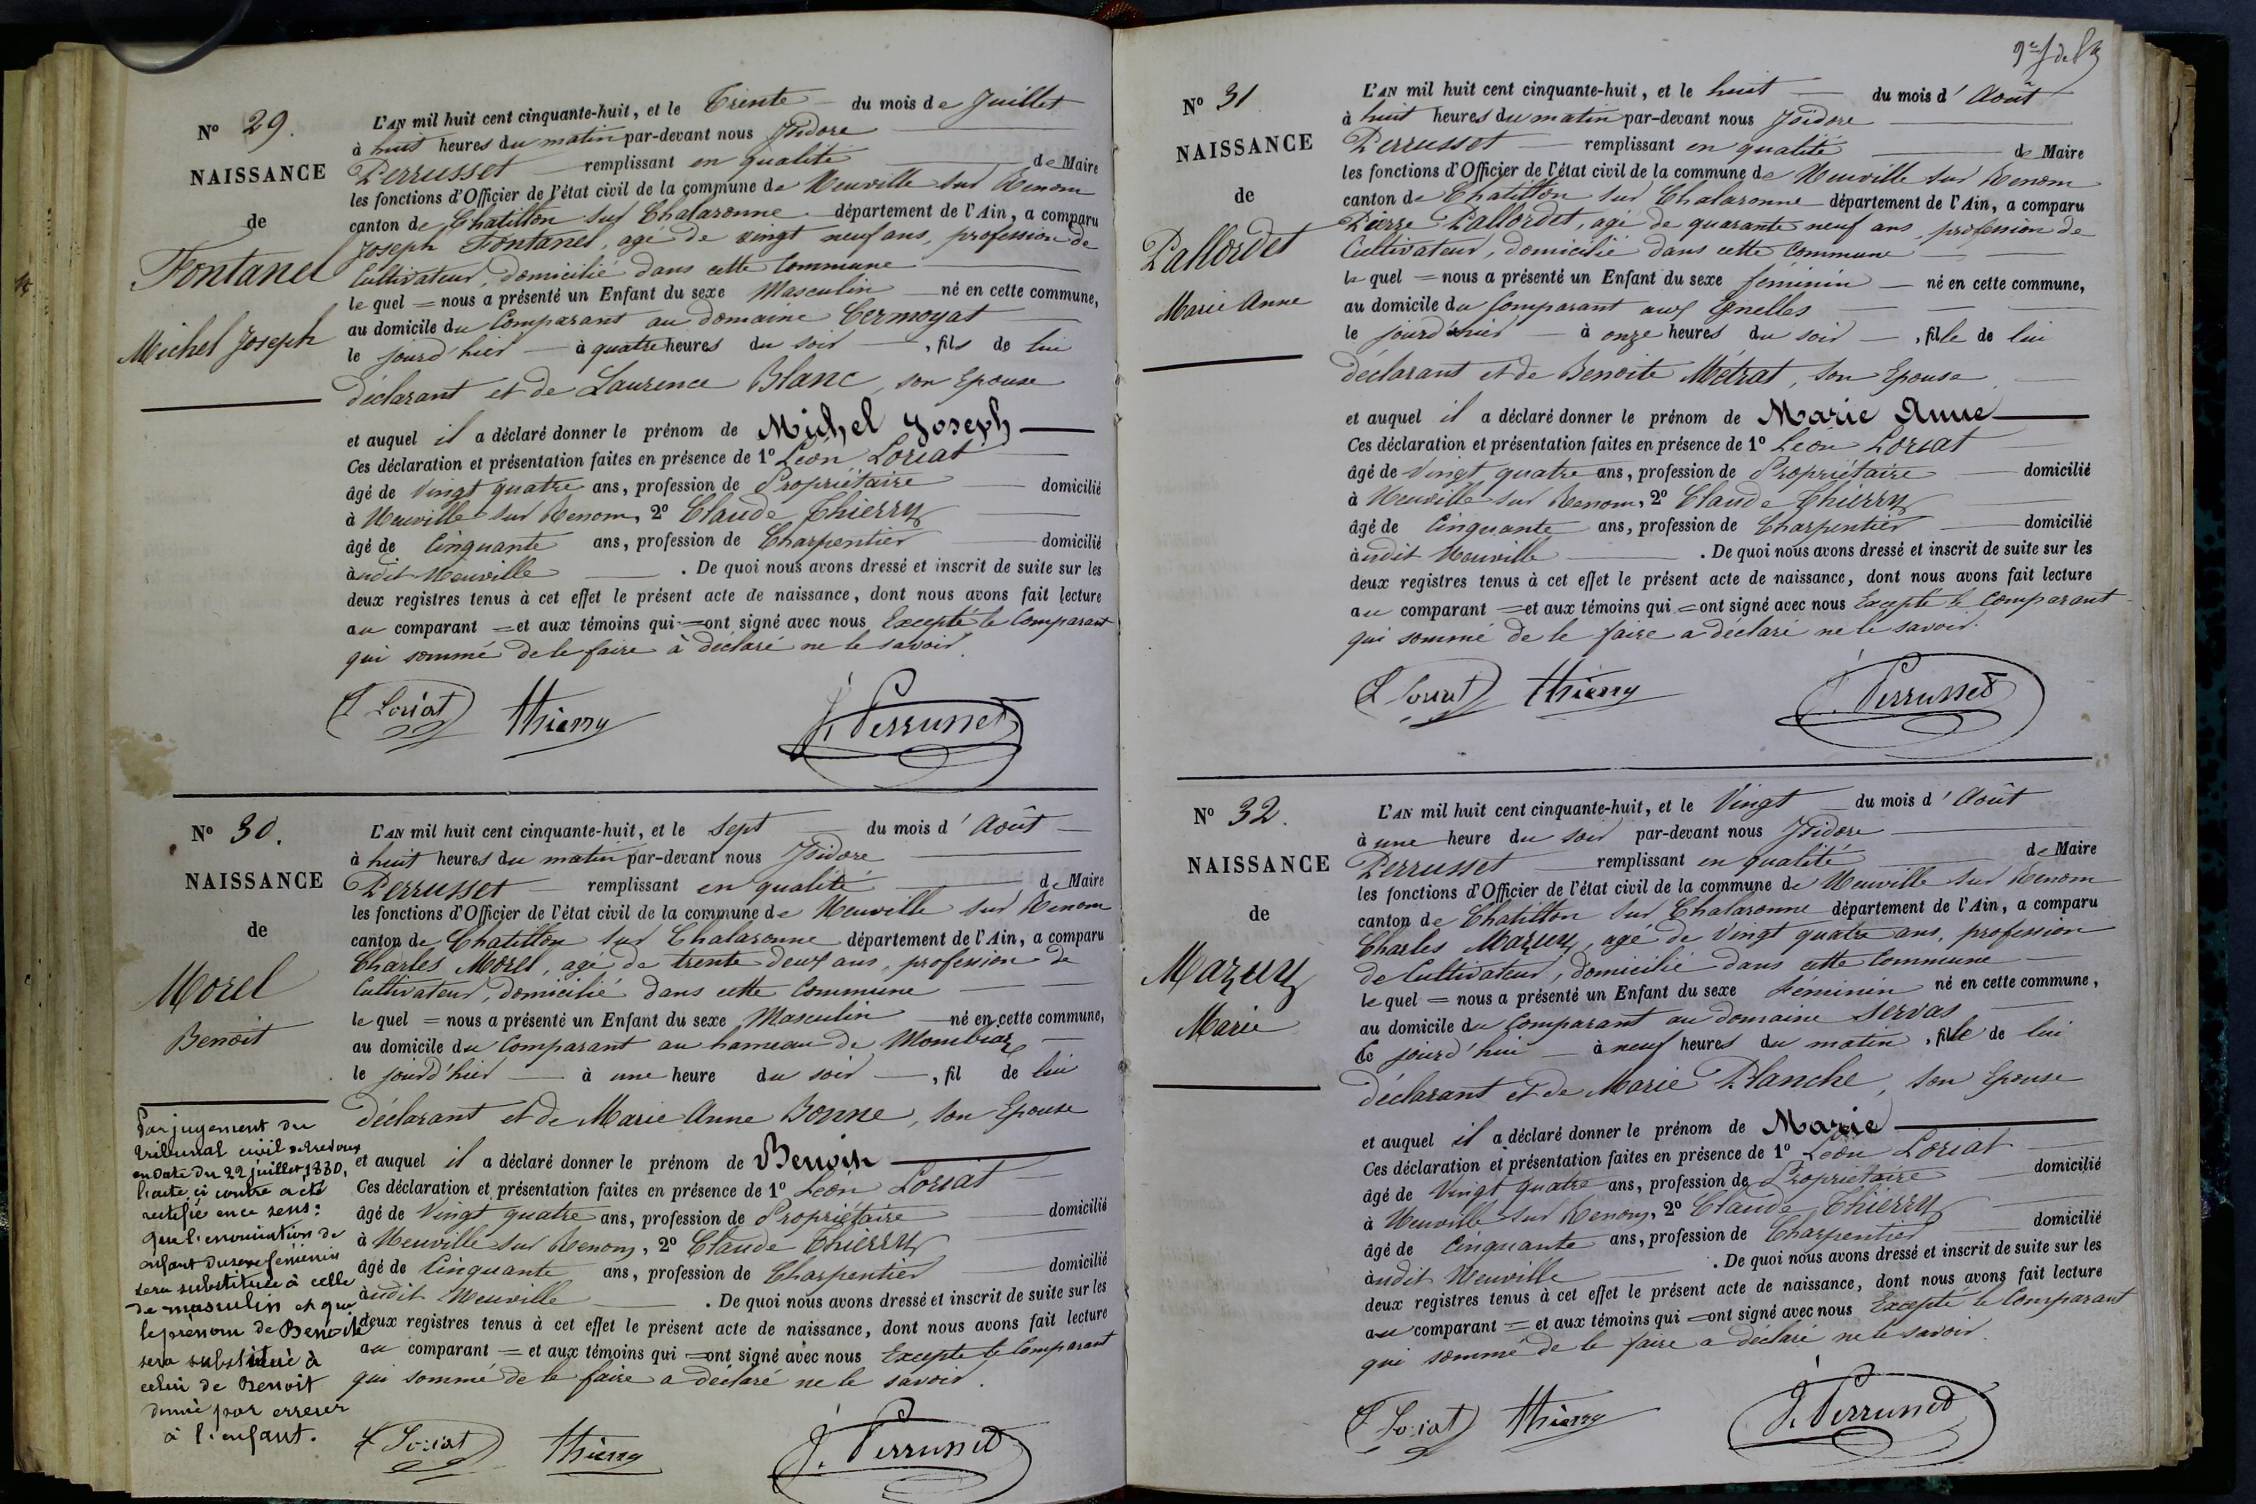 N° 29.
NAISSANCE
de
Fontanel
Michel Joseph
L'AN mil huit cent cinquante-huit, et le Trente du mois de Juillet
à huit heures du matin par-devant nous Isidore
Perrusset remplissant en qualité de Maire
les fonctions d'Officier de l'état civil de la commune de Neuville sur Renom
canton de Chatillon sur Chalaronne département de l'Ain, a comparu
Joseph Fontanel, agé de vingt neuf ans, profession de
Cultivateur, domicilié dans cette Commune
le quel = nous a présenté un Enfant du sexe Masculin né en cette commune,
au domicile du Comparant au domaine Cermoyat
le jourd'hier à quatre heures du soir, fils de lui
déclarant et de Laurence Blanc, son Epouse
et auquel il a déclaré donner le prénom de Michel Joseph
Ces déclaration et présentation faites en présence de 1° Léon Loriat
âgé de Vingt quatre ans, profession de Propriétaire domicilié
à Neuville sur Renom, 2° Claude Thierry
âgé de Cinquante ans, profession de Charpentier domicilié
àudit Neuville. De quoi nous avons dressé et inscrit de suite sur les
deux registres tenus à cet effet le présent acte de naissance, dont nous avons fait lecture
au comparant = et aux témoins qui = ont signé avec nous Excepté le Comparant
qui sommé de le faire à déclaré ne le savoir.
L Loriat Thierry J. Perrusset
N° 30.
NAISSANCE
de
Morel
Benoit
L'AN mil huit cent cinquante-huit, et le Sept du mois d'Août
à huit heures du matin par-devant nous Isidore
Perrusset remplissant en qualité de Maire
les fonctions d'Officier de l'état civil de la commune de Neuville sur Renom
canton de Chatillon sur Chalaronne département de l'Ain, a comparu
Charles Morel, agé de trente deux ans, profession de
Cultivateur, domicilié dans cette Commune
le quel = nous a présenté un Enfant du sexe Masculin né en cette commune,
au domicile du Comparant au hameau de
le jourd'hier à une heure du soir, fil de lui
déclarant et de Marie Anne Bonne, son Epouse
et auquel il a déclaré donner le prénom de Benoit
Ces déclaration et présentation faites en présence de 1° Léon Loriat
âgé de Vingt quatre ans, profession de Propriétaire domicilié
à Neuville sur Renom, 2° Claude Thierry
âgé de Cinquante ans, profession de Charpentier domicilié
àudit Neuville. De quoi nous avons dressé et inscrit de suite sur les
deux registres tenus à cet effet le présent acte de naissance, dont nous avons fait lecture
au comparant = et aux témoins qui = ont signé avec nous Excepté le Comparant
qui sommé de le faire a déclaré ne le savoir.
L Loriat Thierry J. Perrusset
Par jugement du
tribunal civil de Trévoux
en date du 22 juillet 1880,
l'acte ci contre a été
rectifié en ce sens:
que l'énonciation de
enfant du sexe féminin
sera substituée à celle
de masculin et que
le prénom de Benoite
sera substitué à
celui de Benoit
donné par erreur
à l'enfant.
N° 31
NAISSANCE
de
Pallordet
Marie Anne
L'AN mil huit cent cinquante-huit, et le huit du mois d'Août
à huit heures du matin par-devant nous Isidore
Perrusset remplissant en qualité de Maire
les fonctions d'Officier de l'état civil de la commune de Neuville sur Renom
canton de Chatillon sur Chalaronne département de l'Ain, a comparu
Pierre Pallordet, agé de quarante neuf ans, profession de
Cultivateur, domicilié dans cette commune
le quel = nous a présenté un Enfant du sexe féminin né en cette commune,
au domicile du Comparant aux Ignelles
le jourd'hier à onze heures du soir, fille de lui
déclarant et de Benoite Métrat, son Epouse
et auquel il a déclaré donner le prénom de Marie Anne
Ces déclaration et présentation faites en présence de 1° Léon Loriat
âgé de Vingt quatre ans, profession de Propriétaire domicilié
à Neuville sur Renom, 2° Claude Thierry
âgé de Cinquante ans, profession de Charpentier domicilié
àudit Neuville. De quoi nous avons dressé et inscrit de suite sur les
deux registres tenus à cet effet le présent acte de naissance, dont nous avons fait lecture
au comparant = et aux témoins qui = ont signé avec nous Excepté le Comparant
qui sommé de le faire a déclaré ne le savoir.
L Loriat Thierry J. Perrusset
N° 32.
NAISSANCE
de
Mazuy
Marie
L'AN mil huit cent cinquante-huit, et le Vingt du mois d'Août
à une heure du soir par-devant nous Isidore
Perrusset remplissant en qualité de Maire
les fonctions d'Officier de l'état civil de la commune de Neuville sur Renom
canton de Chatillon sur Chalaronne département de l'Ain, a comparu
Charles Mazuy, agé de Vingt quatre ans, profession
de Cultivateur, domicilié dans cette Commune
le quel = nous a présenté un Enfant du sexe Feminin né en cette commune,
au domicile du Comparant au domaine Servas
le jourd'hui à neuf heures du matin, fille de lui
déclarant et de Marie Planche, son Epouse
et auquel il a déclaré donner le prénom de Marie
Ces déclaration et présentation faites en présence de 1° Léon Loriat
âgé de Vingt quatre ans, profession de Propriétaire domicilié
à Neuville sur Renom, 2° Claude Thierry
âgé de Cinquante ans, profession de Charpentier domicilié
àudit Neuville. De quoi nous avons dressé et inscrit de suite sur les
deux registres tenus à cet effet le présent acte de naissance, dont nous avons fait lecture
au comparant = et aux témoins qui = ont signé avec nous Excepté le Comparant
qui sommé de le faire a déclaré ne le savoir.
L Loriat Thierry J. Perrusset